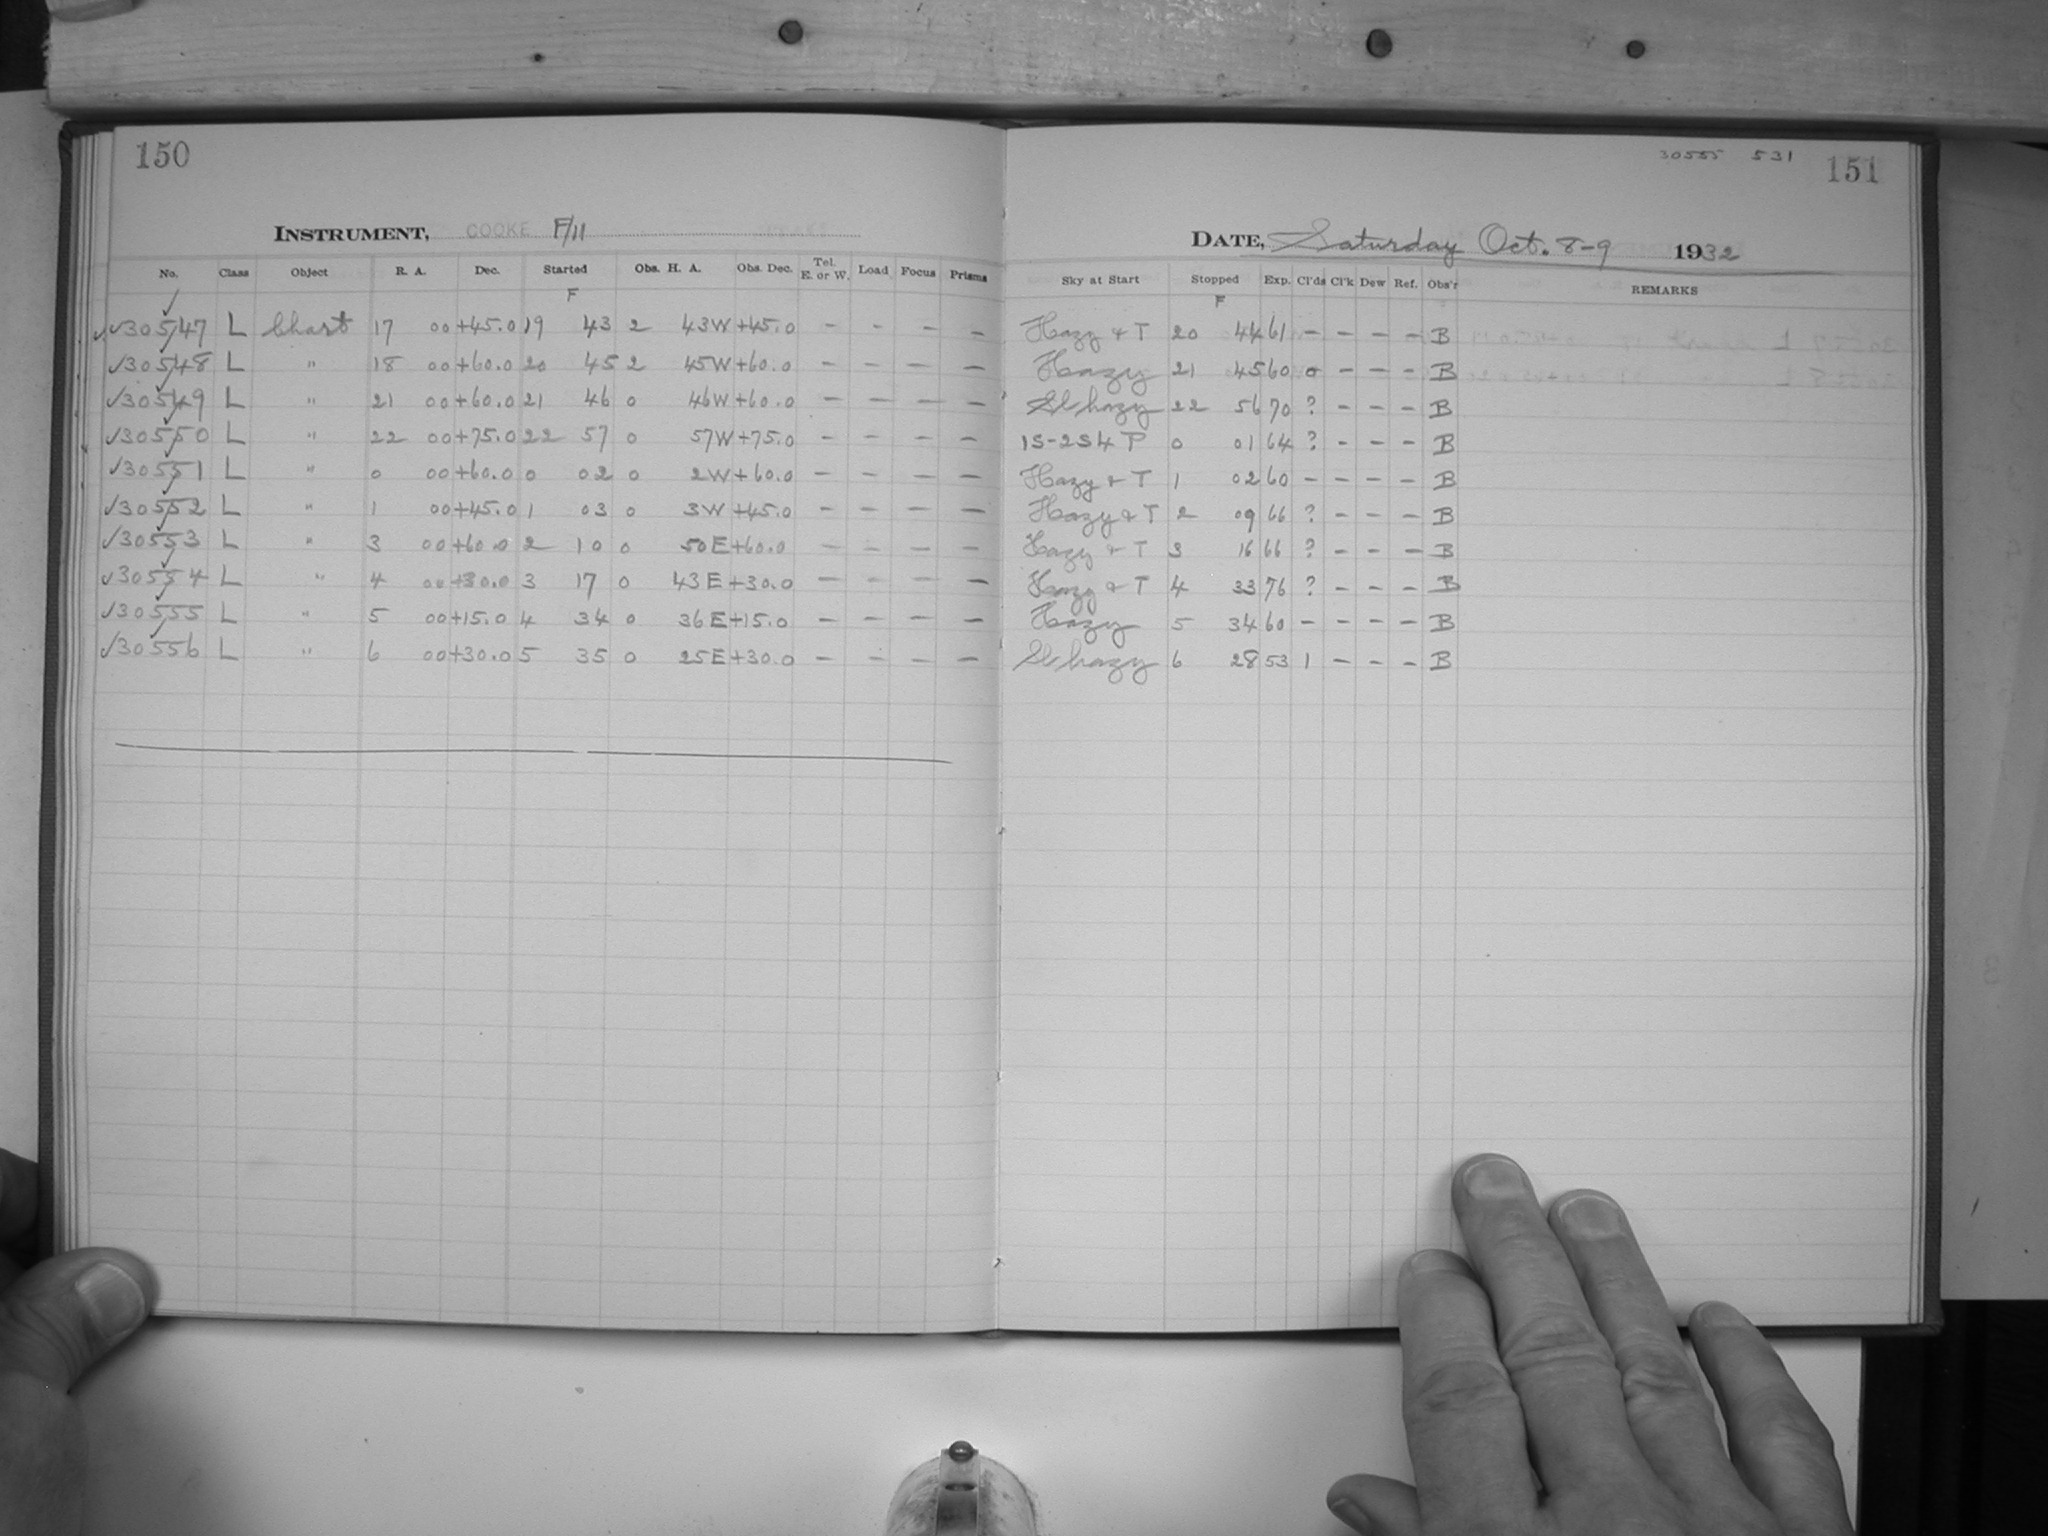 150
INSTRUMENT, COOKE F/11
No. Class Object R. A. Dec. Started Obs. H. A. Obs. Dec. Tel. E. or W. Load Focus Prisms
F
✓30547 L Chart 17 00 +45.0 19 43 2 43W +45.0 - - - -
✓30548 L " 18 00 +60.0 20 45 2 45W +60.0 - - - -
✓30549 L " 21 00 +60.0 21 46 0 46W +60.0 - - - -
✓30550 L " 22 00 +75.0 22 57 0 57W +75.0 - - - -
✓30551 L " 0 00 +60.0 0 02 0 2W +60.0 - - - -
✓30552 L " 1 00 +45.0 1 03 0 3W +45.0 - - - -
✓30553 L " 3 00 +60.0 2 10 0 50E +60.0 - - - -
✓30554 L " 4 00 +30.0 3 17 0 43E +30.0 - - - -
✓30555 L " 5 00 +15.0 4 34 0 36E +15.0 - - - -
✓30556 L " 6 00 +30.0 5 35 0 25E +30.0 - - - -
30555 531 151
DATE, Saturday Oct. 8-9 1932
Sky at Start Stopped Exp. Cl'ds Cl'k Dew Ref. Obs'r REMARKS
F
Hazy & T 20 44 61 - - - - B
Hazy 21 45 60 0 - - - B
Sl hazy 22 56 70 ? - - - B
1S-2S4 P 0 01 64 ? - - - B
Hazy & T 1 02 60 - - - - B
Hazy & T 2 09 66 ? - - - B
Hazy & T 3 16 66 ? - - - B
Hazy & T 4 33 76 ? - - - B
Hazy 5 34 60 - - - - B
Sl hazy 6 28 53 1 - - - B